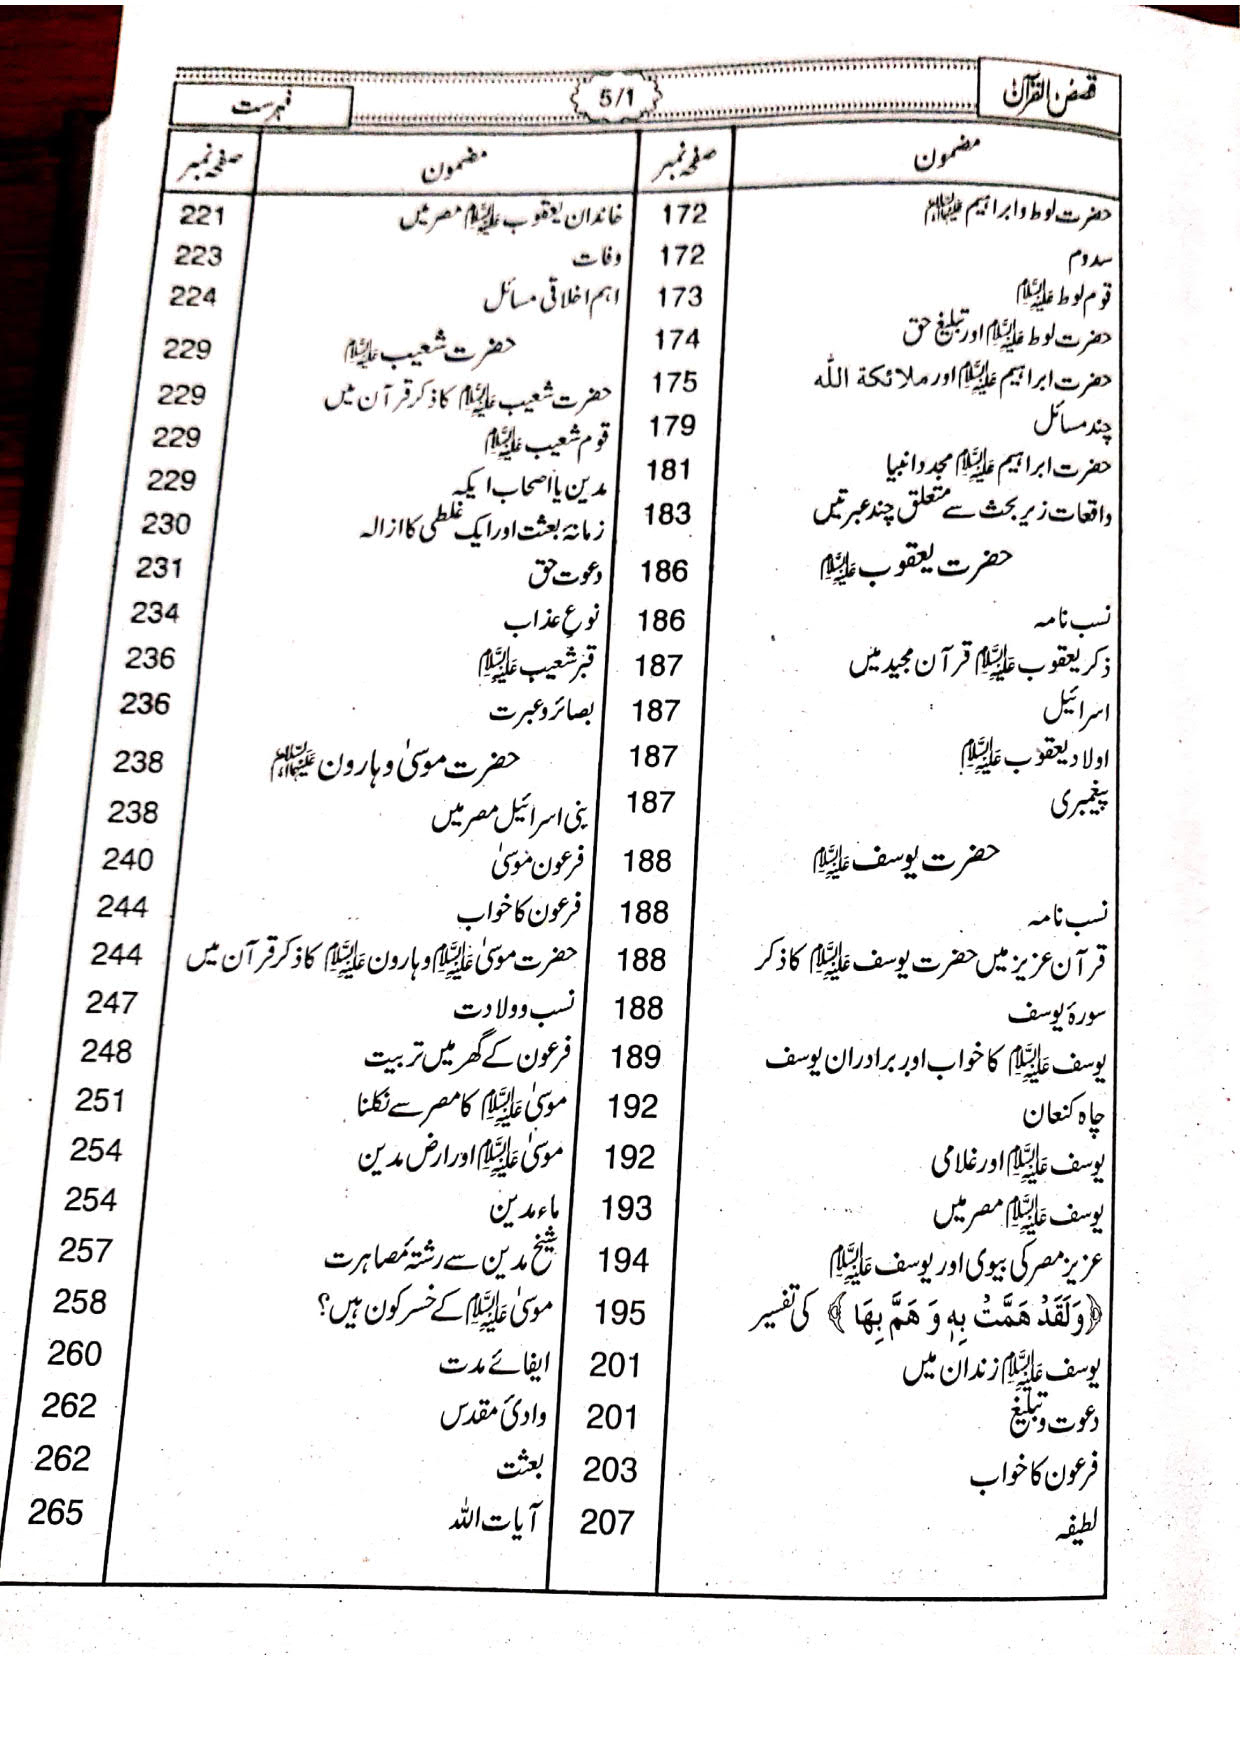 قصص القرآن 5/1 فہرست
مضمون صفحہ نمبر
حضرت لوط و ابراہیم علیہما السلام 172
سدوم 172
قوم لوط علیہ السلام 173
حضرت لوط علیہ السلام اور تبلیغ حق 174
حضرت ابراہیم علیہ السلام اور ملائکة اللہ 175
چند مسائل 179
حضرت ابراہیم علیہ السلام مجدد انبیا 181
واقعات زیر بحث سے متعلق چند عبرتیں 183
حضرت یعقوب علیہ السلام 186
نسب نامہ 186
ذکر یعقوب علیہ السلام قرآن مجید میں 187
اسرائیل 187
اولاد یعقوب علیہ السلام 187
پیغمبری 187
حضرت یوسف علیہ السلام 188
نسب نامہ 188
قرآن عزیز میں حضرت یوسف علیہ السلام کا ذکر 188
سورۂ یوسف 188
یوسف علیہ السلام کا خواب اور برادران یوسف 189
چاہ کنعان 192
یوسف علیہ السلام اور غلامی 192
یوسف علیہ السلام مصر میں 193
عزیز مصر کی بیوی اور یوسف علیہ السلام 194
﴿وَلَقَدْ هَمَّتْ بِهٖ وَ هَمَّ بِهَا﴾ کی تفسیر 195
یوسف علیہ السلام زندان میں 201
دعوت و تبلیغ 201
فرعون کا خواب 203
لطیفہ 207
مضمون صفحہ نمبر
خاندان یعقوب علیہ السلام مصر میں 221
وفات 223
اہم اخلاقی مسائل 224
حضرت شعیب علیہ السلام 229
حضرت شعیب علیہ السلام کا ذکر قرآن میں 229
قوم شعیب علیہ السلام 229
مدین یا اصحاب ایکہ 229
زمانۂ بعثت اور ایک غلطی کا ازالہ 230
دعوت حق 231
نوعِ عذاب 234
قبر شعیب علیہ السلام 236
بصائر و عبرت 236
حضرت موسیٰ و ہارون علیہما السلام 238
بنی اسرائیل مصر میں 238
فرعون موسیٰ 240
فرعون کا خواب 244
حضرت موسیٰ علیہ السلام و ہارون علیہ السلام کا ذکر قرآن میں 244
نسب و ولادت 247
فرعون کے گھر میں تربیت 248
موسیٰ علیہ السلام کا مصر سے نکلنا 251
موسیٰ علیہ السلام اور ارض مدین 254
ماء مدین 254
شیخ مدین سے رشتۂ مصاہرت 257
موسیٰ علیہ السلام کے خسر کون ہیں؟ 258
ایفائے مدت 260
وادیٔ مقدس 262
بعثت 262
آیات اللہ 265